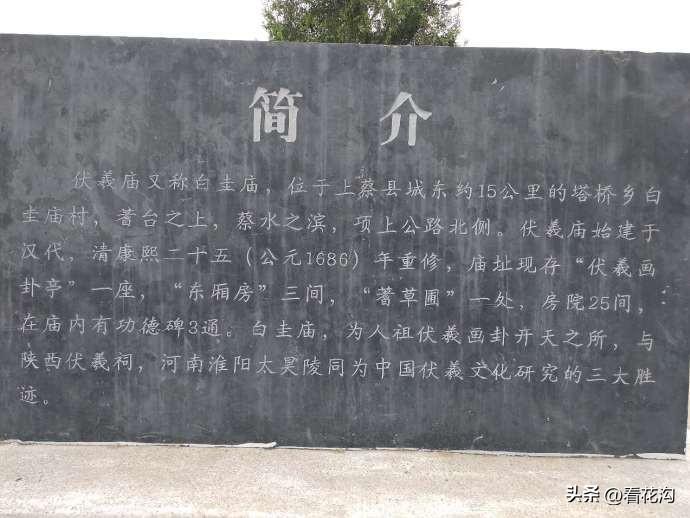 简介
伏羲庙又称白圭庙，位于上蔡县城东约15公里的塔桥乡白
圭庙村，蓍台之上，蔡水之滨，项上公路北侧。伏羲庙始建于
汉代，清康熙二十五（公元1686）年重修，庙址现存“伏羲画
卦亭”一座，“东厢房”三间，“蓍草圃”一处，房院25间，
在庙内有功德碑3通。白圭庙，为人祖伏羲画卦开天之所，与
陕西伏羲祠，河南淮阳太昊陵同为中国伏羲文化研究的三大胜
迹。
头条 @看花沟